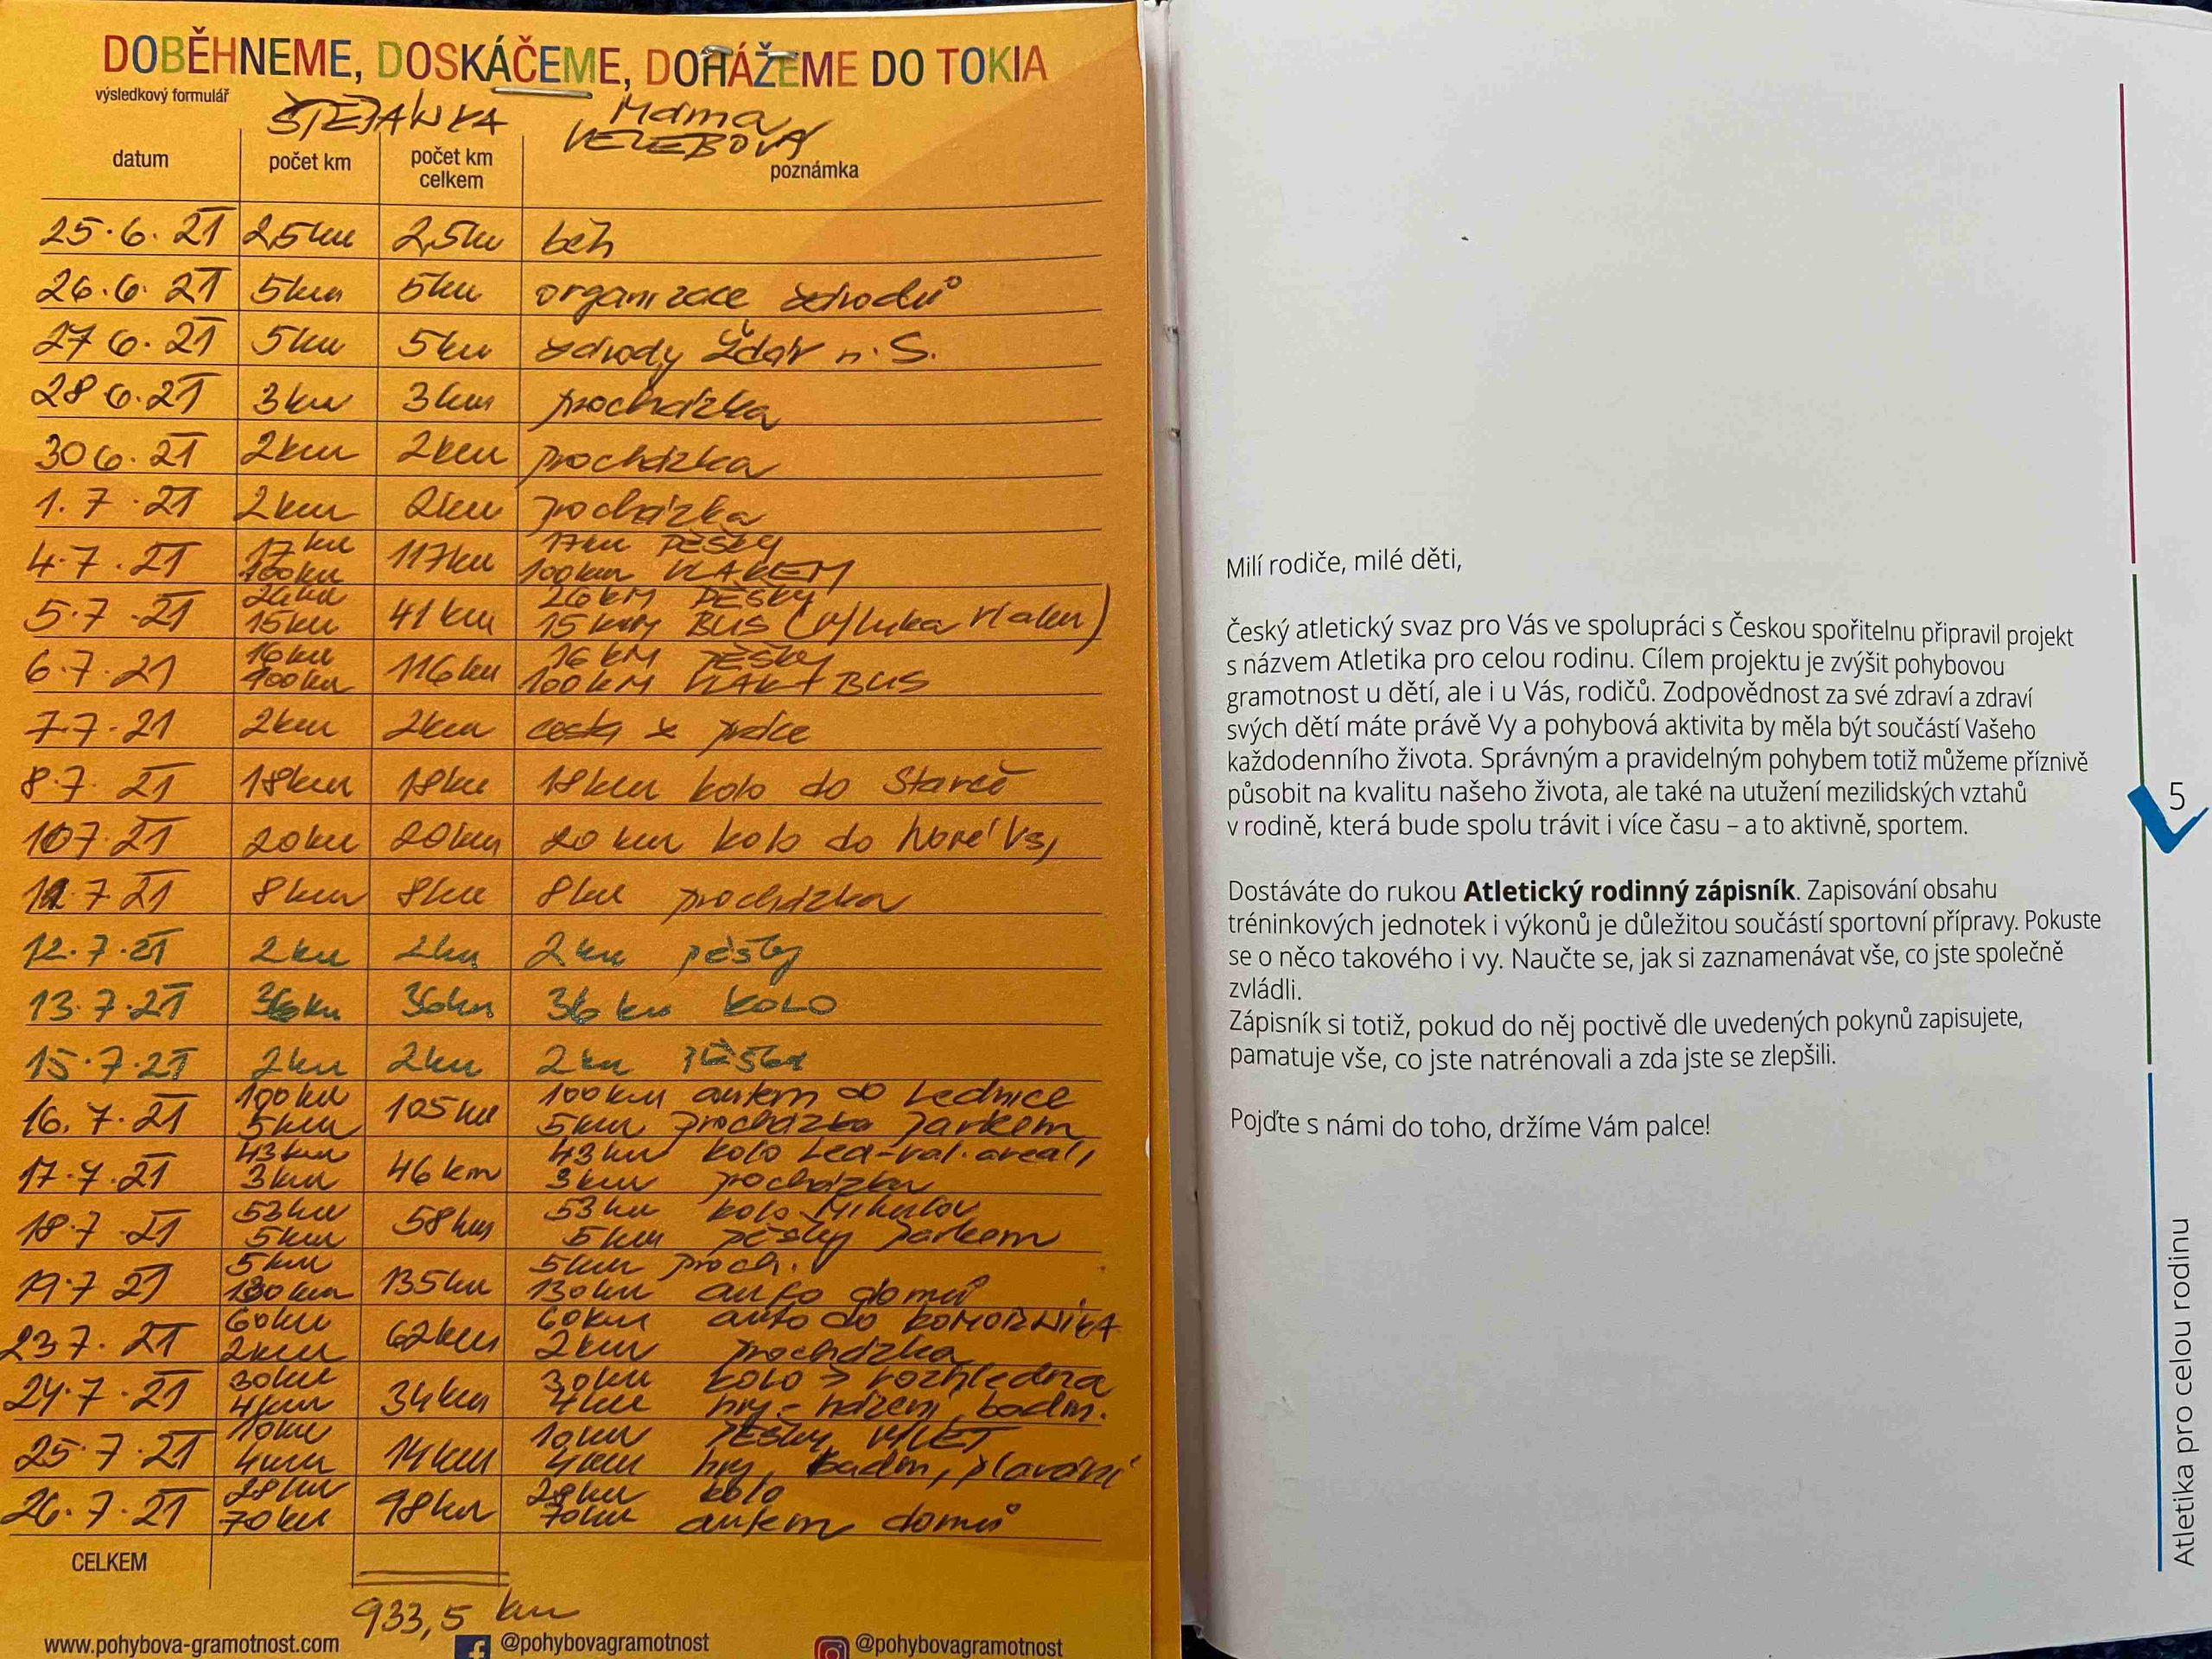 DOBĚHNEME, DOSKÁČEME, DOHÁŽEME DO TOKIA
výsledkový formulář
ŠTĚPÁNKA Máma
VELEBOVÁ
datum počet km počet km celkem poznámka
25.6.21 2,5km 2,5km běh
26.6.21 5km 5km organizace závodů
27 6.21 5km 5km závody Žďár n.S.
28 6.21 3km 3km procházka
30 6.21 2km 2km procházka
1.7.21 2km 2km procházka
4.7.21 17km 100km 117km 17km PĚŠKY 100km VLAKEM
5.7.21 26km 15km 41km 26KM PĚŠKY 15km BUS (výluka vlaku)
6.7.21 16km 100km 116km 16KM PĚŠKY 100KM VLAK+BUS
7.7.21 2km 2km cesta z práce
8.7.21 18km 18km 18km kolo do Starče
10 7.21 20km 20km 20km kolo do Horní Vsi
11.7.21 8km 8km 8km procházka
12.7.21 2km 2km 2km pěšky
13.7.21 36km 36km 36km KOLO
15.7.21 2km 2km 2km pěšky
16.7.21 100km 5km 105km 100km autem do Lednice 5km procházka parkem
17.7.21 43km 3km 46km 43km kolo Led-val.areál, 3km procházka
18.7.21 53km 5km 58km 53km kolo Mikulov 5km pěšky parkem
19.7 21 5km 130km 135km 5km proch. 130km auto domů
23 7.21 60km 2km 62km 60km auto do KOMORNÍKA 2km procházka
24.7.21 30km 4km 34km 30km kolo > rozhledna 4km hry - házení, badm.
25.7.21 10km 4km 14km 10km PĚŠKY VÝLET 4km hry, badm, plavání
26.7.21 28km 70km 98km 28km kolo 70km autem domů
CELKEM
933,5 km
www.pohybova-gramotnost.com @pohybovagramotnost @pohybovagramotnost
Milí rodiče, milé děti,
Český atletický svaz pro Vás ve spolupráci s Českou spořitelnu připravil projekt
s názvem Atletika pro celou rodinu. Cílem projektu je zvýšit pohybovou
gramotnost u dětí, ale i u Vás, rodičů. Zodpovědnost za své zdraví a zdraví
svých dětí máte právě Vy a pohybová aktivita by měla být součástí Vašeho
každodenního života. Správným a pravidelným pohybem totiž můžeme příznivě
působit na kvalitu našeho života, ale také na utužení mezilidských vztahů
v rodině, která bude spolu trávit i více času – a to aktivně, sportem.
Dostáváte do rukou Atletický rodinný zápisník. Zapisování obsahu
tréninkových jednotek i výkonů je důležitou součástí sportovní přípravy. Pokuste
se o něco takového i vy. Naučte se, jak si zaznamenávat vše, co jste společně
zvládli.
Zápisník si totiž, pokud do něj poctivě dle uvedených pokynů zapisujete,
pamatuje vše, co jste natrénovali a zda jste se zlepšili.
Pojďte s námi do toho, držíme Vám palce!
5
Atletika pro celou rodinu